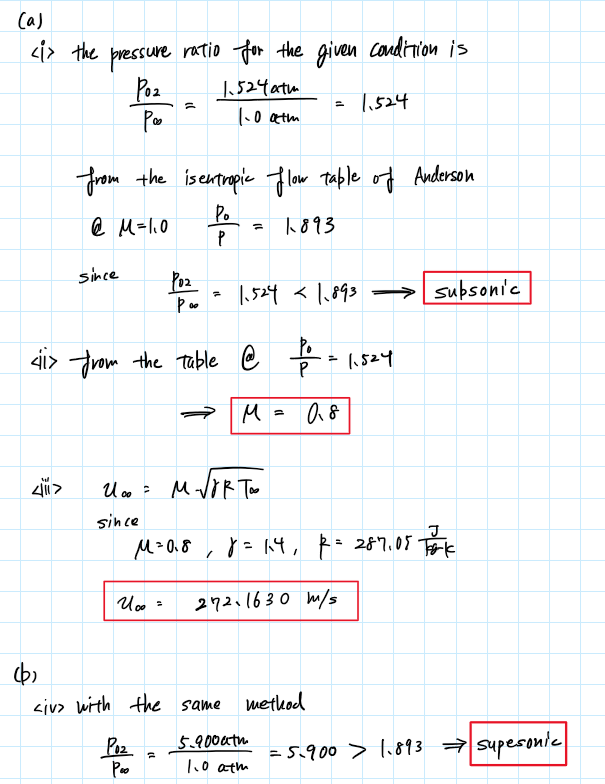 (a)
<i> the pressure ratio for the given condition is
P02/P∞ = 1.524atm/1.0 atm = 1.524
from the isentropic flow table of Anderson
@ M=1.0 Po/P = 1.893
since P02/P∞ = 1.524 < 1.893 ⟹ subsonic
<ii> from the table @ Po/P = 1.524
⟹ M = 0.8
<iii> u∞ = M√γRT∞
since
M=0.8 , γ = 1.4, R = 287.05 J/kg·K
u∞ = 272.1630 m/s
(b)
<iv> with the same method
P02/P∞ = 5.900atm/1.0 atm = 5.900 > 1.893 ⇒ supesonic